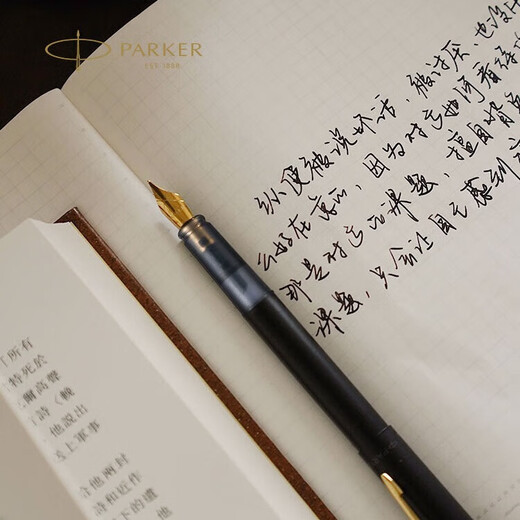 PARKER
EST. 1888
纵使被说坏话，被讨厌，也没什
么好在意的，因为对方如何看待你
那是对方的课题，擅自背负
课题，只会让自己感到
「所有
特死於
爾高聲
詩《輓
他說出
上軍事
給他兩封
詩和近作
下的遺